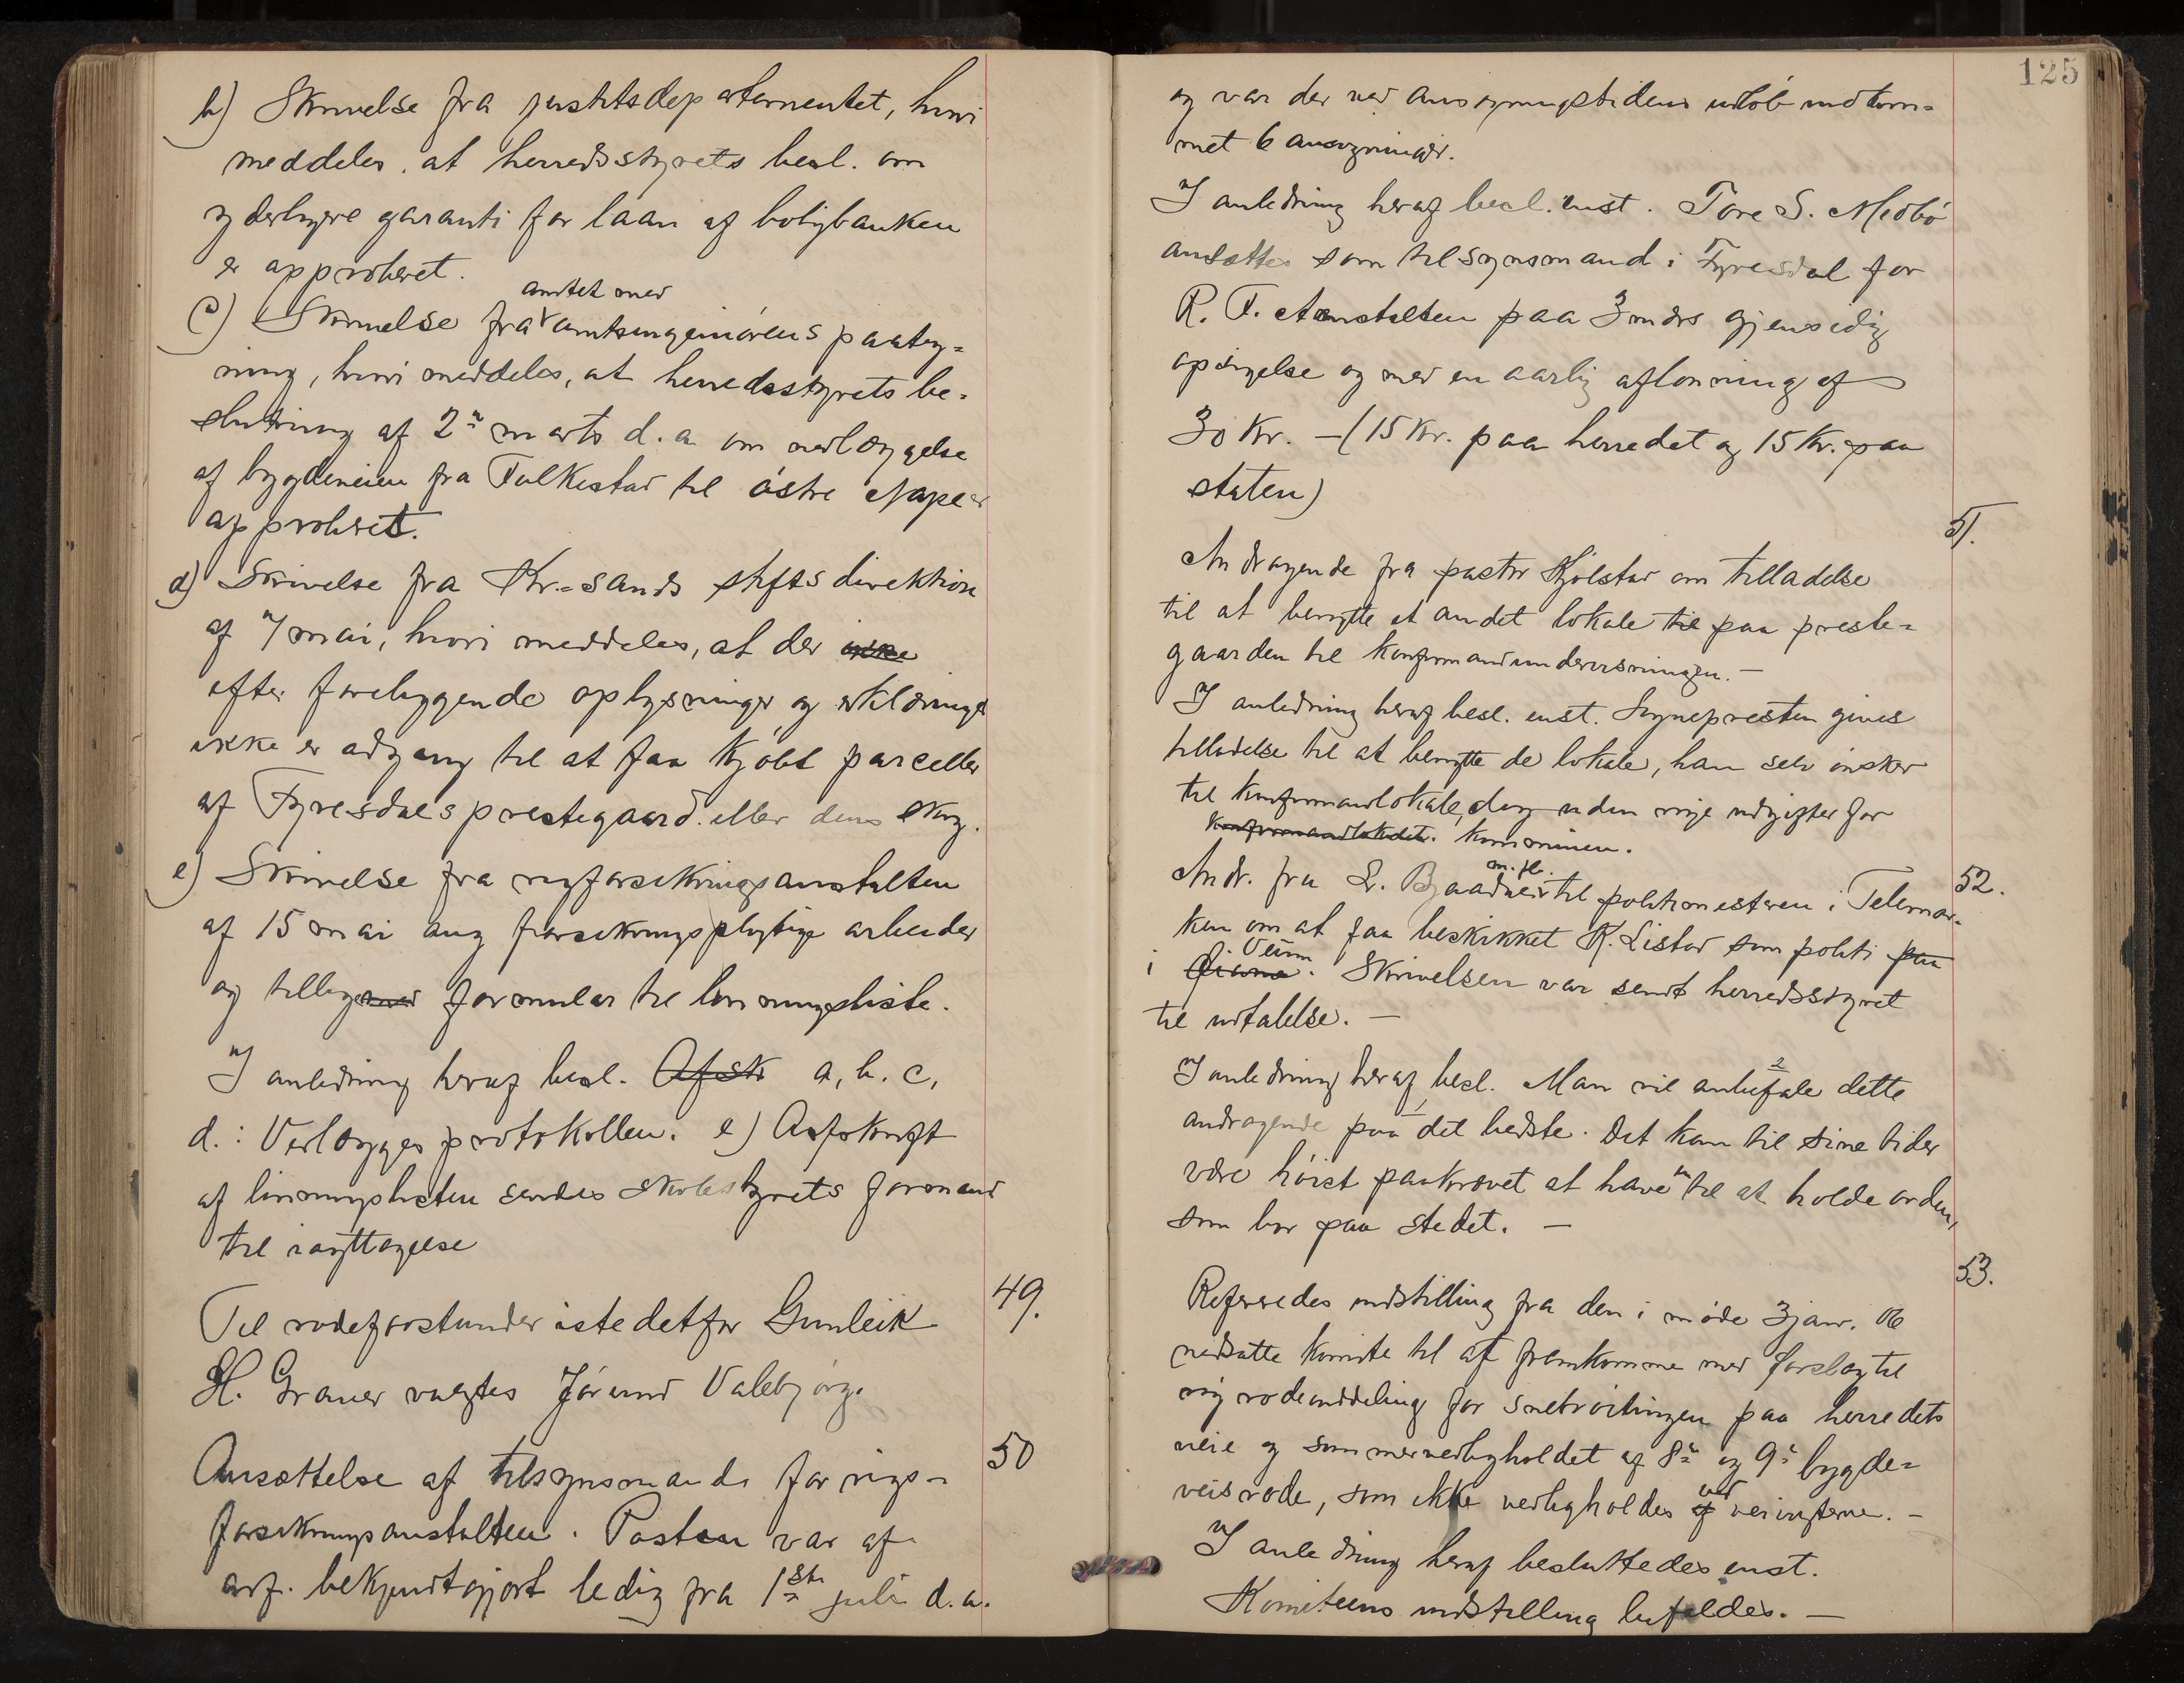 b) Skrivelse fra justitsdepartementet, hvori
meddeles, at herredsstyrets besl. om
yderligere garanti for laan af boligbanken
er approberet.
c) Skrivelse fra amtet med amtsingeniörens paateg=
ning, hvori meddeles, at herredsstyrets be=
slutning af 2n marts d.a. om nedlæggelse
af bygdeveien fra Tulkestad til östre Nape er
approberet.
d) Skrivelse fra Kr.=sands stiftsdirektion
af 7 mai, hvori meddeles, at der ikke
efter foreliggende oplysninger og erklæringer
ikke er adgang til at faa kjöbt parceller
af Fyresdals prestegaard eller dens skog.
e) Skrivelse fra rigsforsikringsanstalten
af 15 mai ang forsikringspligtige arbeider
og tillige med formular til lönningsliste.
I anledning heraf besl. Afskr a, b. c,
d.: Vedlægges protokollen. e) Afskrift
af lönningslisten sendes skolestyrets formand
til iagttagelse
49.
Til rodeforstander istedetfor Gunleik
H. Graver valgtes Jörund Valebjörg.
50
Ansættelse af tilsynsmand for rigs=
forsikringsanstalten. Posten var af
arf. bekjendtgjort ledig fra 1ste juli d.a.
125
og var der ved ansögningstidens udlöb indkom=
met 6 ansögninger.
I anledning heraf besl. enst. Tore S. Medbö
ansættes som tilsynsmand i Fyresdal for
R. F. Anstalten paa 3 mdrs gjensidig
opsigelse og med en aarlig aflönning af
30 Kr. – (15 Kr. paa herredet og 15 Kr. paa
staten)
51.
Andragende fra pastor Kjölstad om tilladelse
til at benytte et andet lokale til paa preste=
gaarden til konfirmandundervisningen. –
I anledning heraf besl. enst. Sognepresten gives
tilladelse til at benytte de lokale, han selv önsker
til konfirmandlokale, dog uden nye udgifter for
konfirmandlokalet. kommunen.
52.
Andr. fra L. Bjaadnes m. fl. til politimesteren i Telemar=
ken om at faa beskikket K. Listad som politi paa
i Veum. Skrivelsen var sendt herredsstyret
til udtalelse. –
I anledning heraf besl. Man vil anbefale dette
andragende paa det bedste. Det kan til sine tider
være höist paakrævet at have en til at holde orden,
som bor paa stedet. –
53.
Refereredes indstilling fra den i möde 3 jan. 06
nedsatte komite til at fremkomme med forslag til
ny rodeinddeling for snebröitingen paa herredets
veie og sommervedligholdet af 8de og 9de bygde=
veisrode, som ikke vedligholdes af ved veivogterne. –
I anledning heraf besluttedes enst.
Komiteens indstilling bifaldes. –